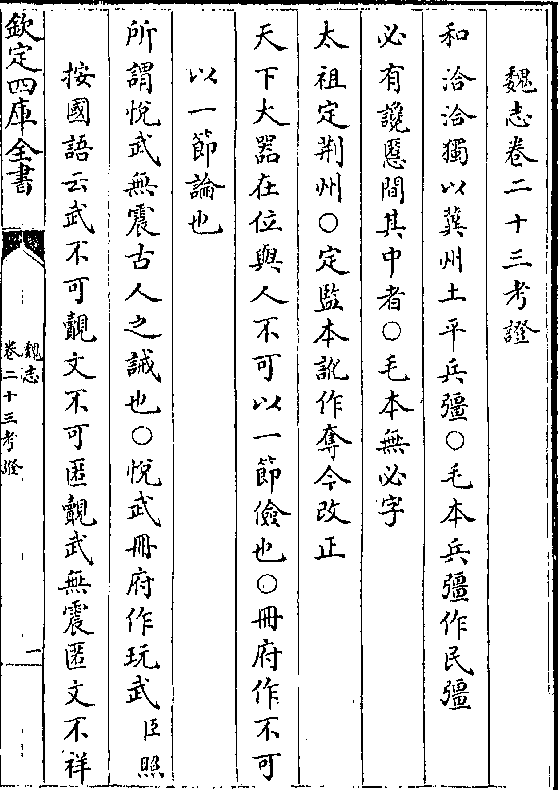 魏志卷二十三考證
和洽洽獨以冀州土平兵彊○毛本兵彊作民彊
必有讒慝間其中者○毛本無必字
太祖定荆州○定監本訛作奪今改正
天下大器在位與人不可以一節儉也○冊府作不可
以一節論也
所謂悅武無震古人之誡也○悅武冊府作玩武臣照
按國語云武不可覿文不可匿覿武無震匿文不祥
欽定四庫全書
魏志
卷二十三考證
一